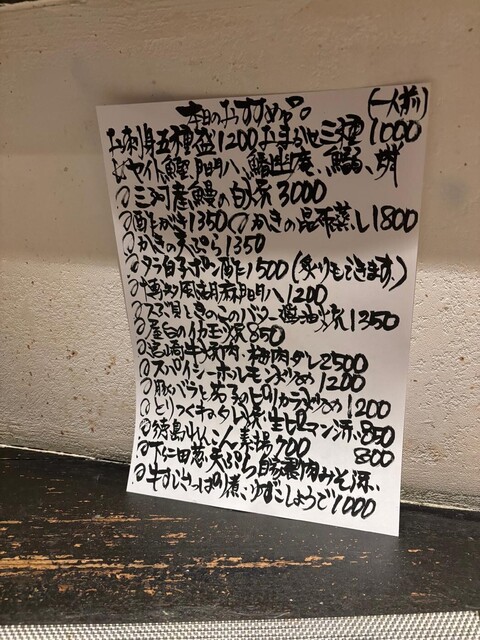 本日のおすすめ。 (一人前)
お刺身五種盛1200 おまかせ三種1000
三河産鰻の白焼3000
酢がき1350 かきの昆布蒸し1800
かきの天ぷら1350
タラ白子ポン酢1500 (炙りもできます。)
博多風胡麻 1200
貝ときのこのバター醤油焼1350
屋台のイカ玉焼850
宮崎牛 肉 梅肉ダレ2500
スパイシーホルモン炒め1200
豚バラと茄子のピリカラ炒め1200
とりつくねのタレ焼、生ピーマン添い850
徳島れんこん素揚700
下仁田葱天ぷら自家製肉みそ添い 800
牛すじさっぱり煮、ゆずこしょうで1000